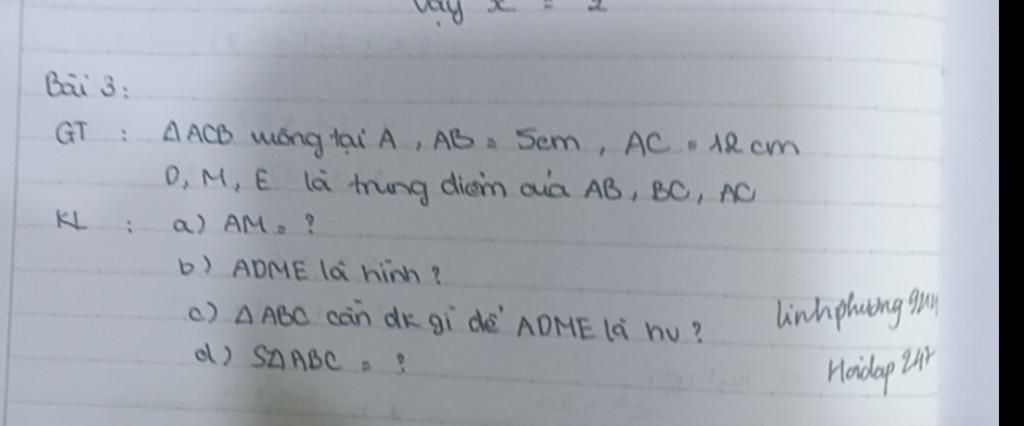 Vậy x = 2
Bài 3:
GT : ΔACB vuông tại A, AB = 5cm, AC = 12cm
D, M, E là trung điểm của AB, BC, AC
KL : a) AM = ?
b) ADME là hình?
c) ΔABC cần đk gì để ADME là hv?
linhphuong
d) SΔABC = ?
Hoidap 247